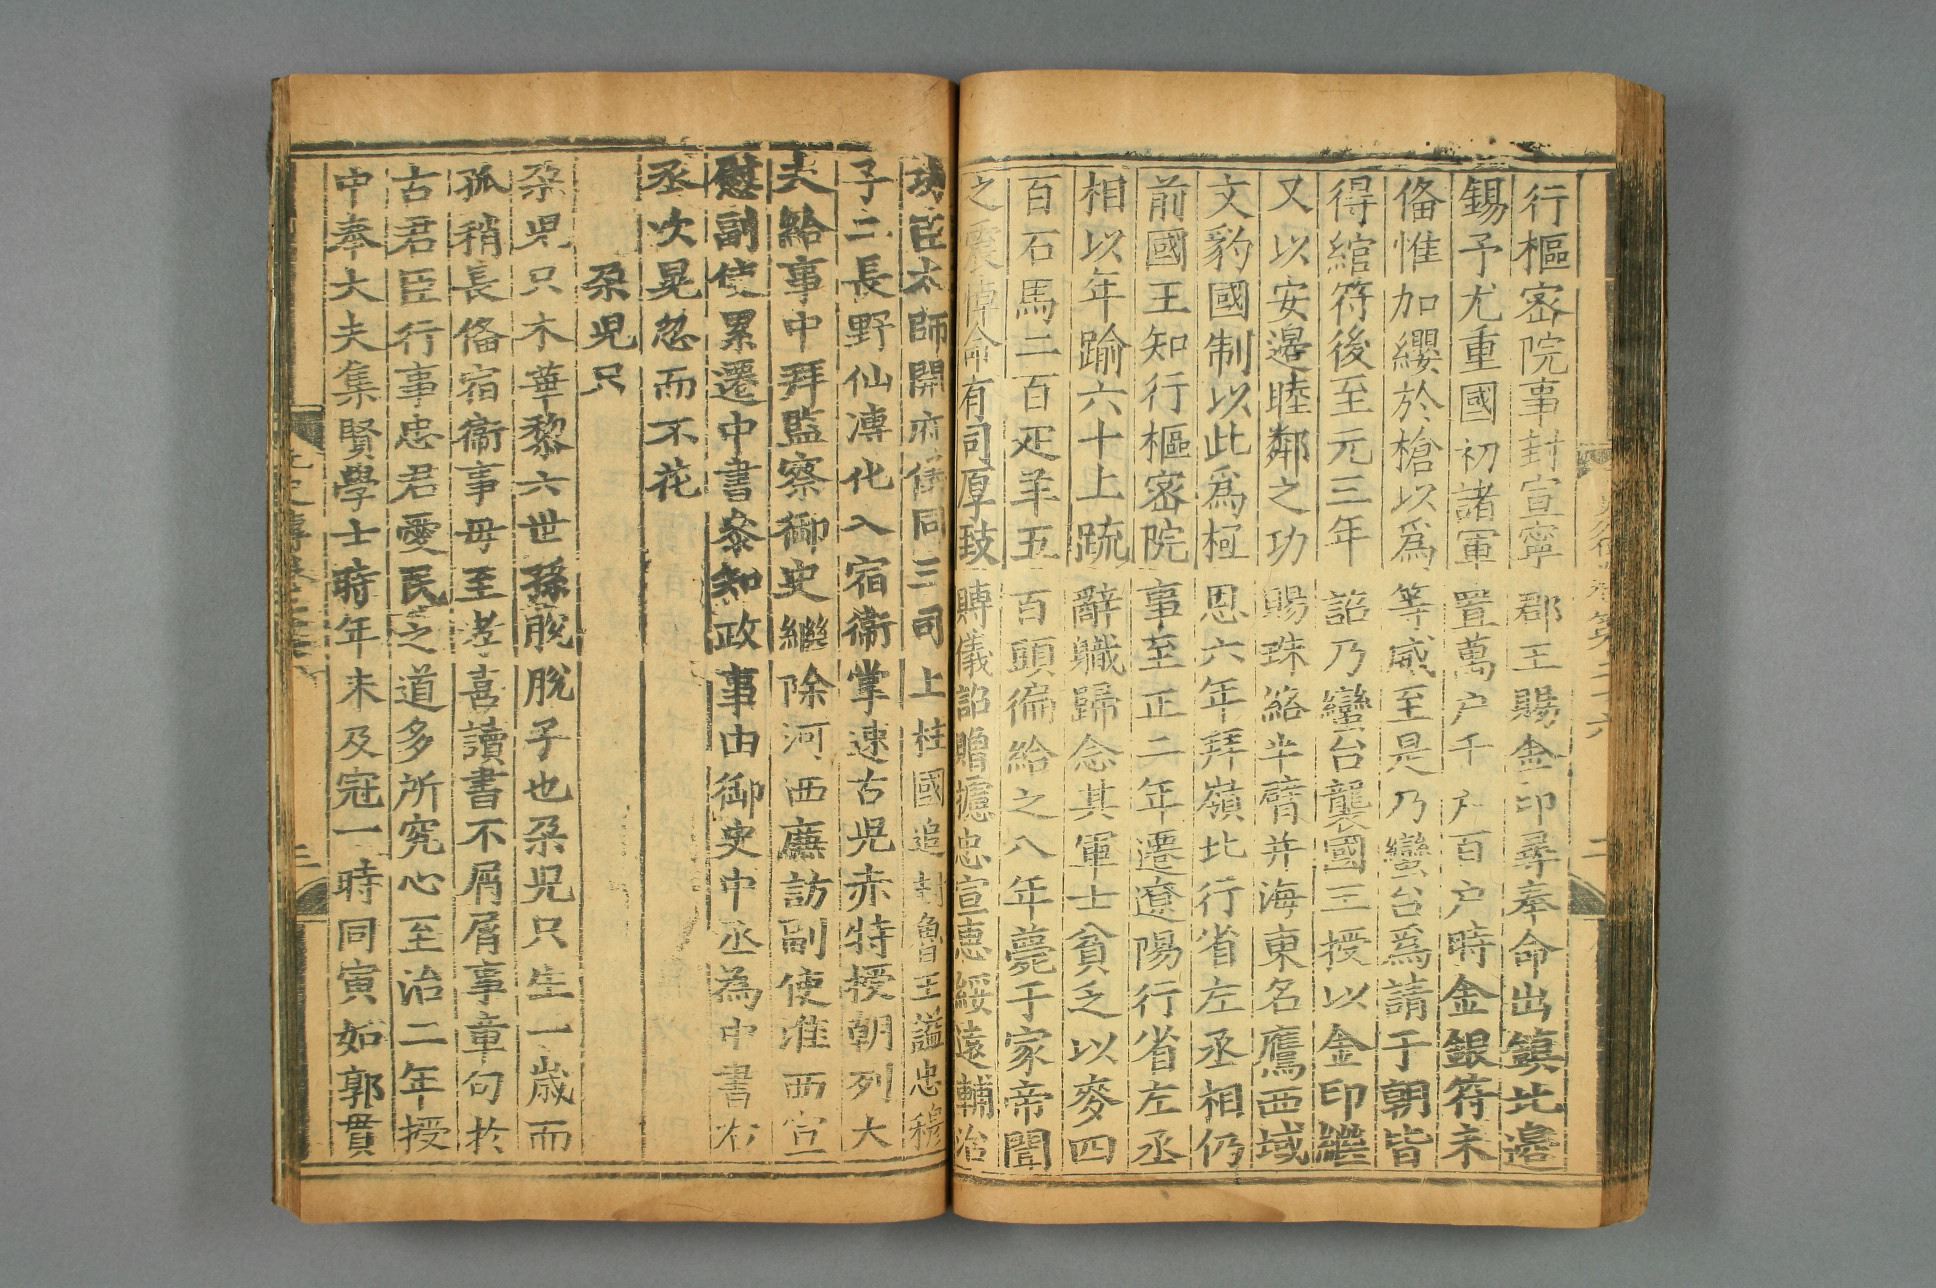 行樞密院事封宣寧郡王賜金印尋奉命出鎮北邊
錫予尤重國初諸軍置萬户千户百户時金銀符未
備惟加纓於槍以爲等威至是乃蠻台爲請于朝皆
得綰符後至元三年詔乃蠻台襲國王授以金印繼
又以安邊睦鄰之功賜珠絡半臂并海東名鷹西域
文豹國制以此爲極恩六年拜嶺北行省左丞相仍
前國王知行樞密院事至正二年遷遼陽行省左丞
相以年踰六十上疏辭職歸念其軍士貧乏以麥四
百石馬二百疋羊五百頭徧給之八年薨于家帝聞
之震悼命有司厚致賻儀詔贈攄忠宣惠綏遠輔治
功臣太師開府儀同三司上柱國追封魯王謚忠穆
子二長野仙溥化入宿衞掌速古兒赤特授朝列大
夫給事中拜監察御史繼除河西廉訪副使淮西宣
慰副使累遷中書叅知政事由御史中丞為中書右
丞次晃忽而不花
朶児只
朶児只木華黎六世孫脫脫子也朶児只生一歲而
孤稍長備宿衞事母至孝喜讀書不屑屑事章句於
古君臣行事忠君愛民之道多所究心至治二年授
中奉大夫集賢學士時年未及冠一時同寅如郭貫